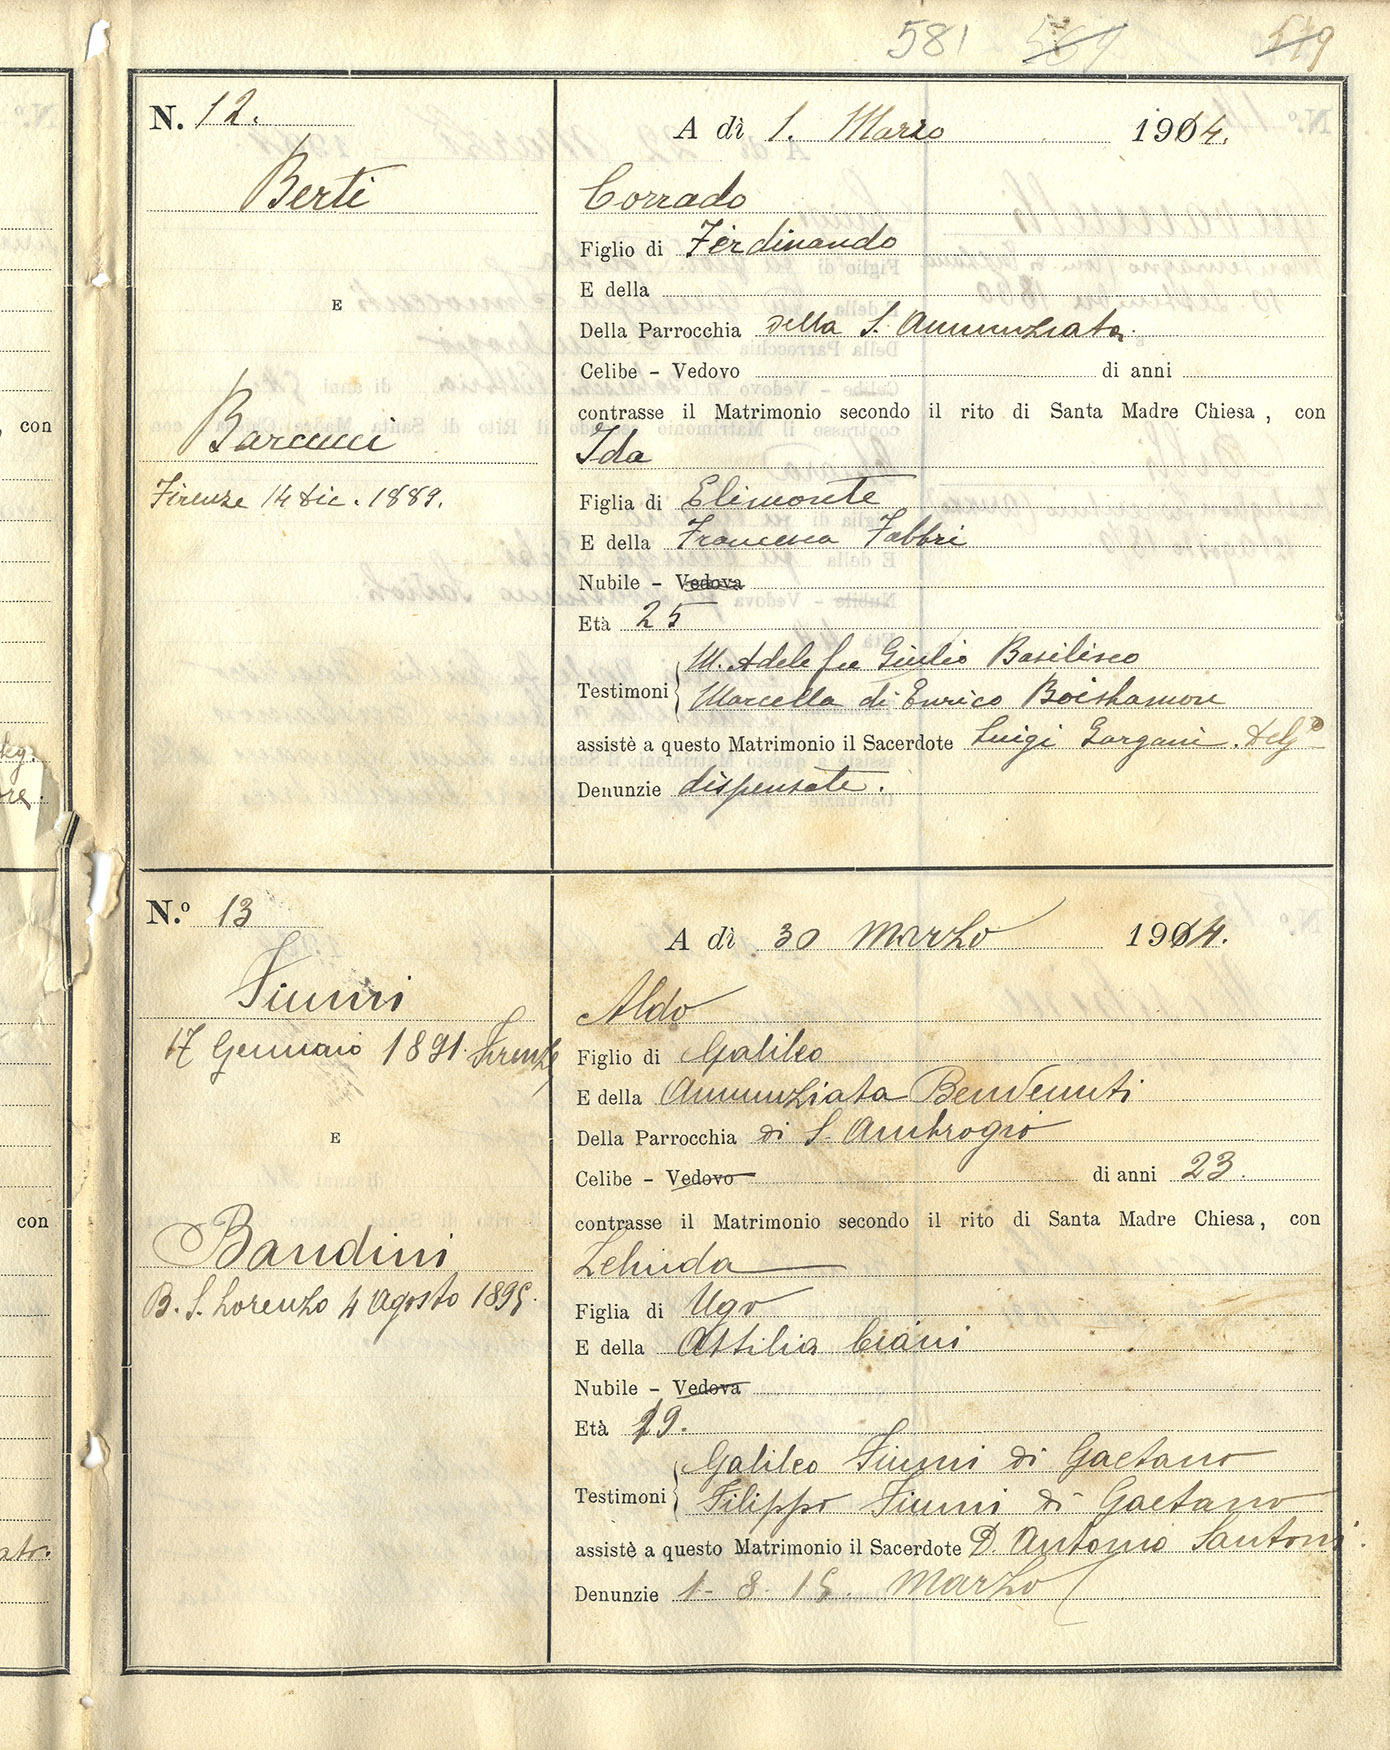 581 569 549
N. 12.
Berti
E
Barucci
Firenze 14 dic. 1889.
A dì 1. Marzo 1914.
Corrado
Figlio di Ferdinando
E della
Della Parrocchia della S. Annunziata.
Celibe - Vedovo di anni
contrasse il Matrimonio secondo il rito di Santa Madre Chiesa, con
Ida
Figlia di Elimonte
E della Francesca Fabbri
Nubile - Vedova
Età 25
Testimoni M. Adele fu Giulio Basilisco
Marcella di Enrico
assistè a questo Matrimonio il Sacerdote Luigi Gargani. Delg.º
Denunzie dispensate.
N.º 13
Fiumi
17 Gennaio 1891. Firenze
E
Bandini
B. S. Lorenzo 4 Agosto 1895.
A dì 30 Marzo 1914.
Aldo
Figlio di Galileo
E della Annunziata Benvenuti
Della Parrocchia di S. Ambrogio
Celibe - Vedovo di anni 23.
contrasse il Matrimonio secondo il rito di Santa Madre Chiesa, con
Zelinda
Figlia di Ugo
E della Attilia Ciani
Nubile - Vedova
Età 19.
Testimoni Galileo Fiumi di Gaetano
Filippo Fiumi di Gaetano
assistè a questo Matrimonio il Sacerdote D. Antonio Santoni.
Denunzie 1- 8. 15. Marzo
con
con